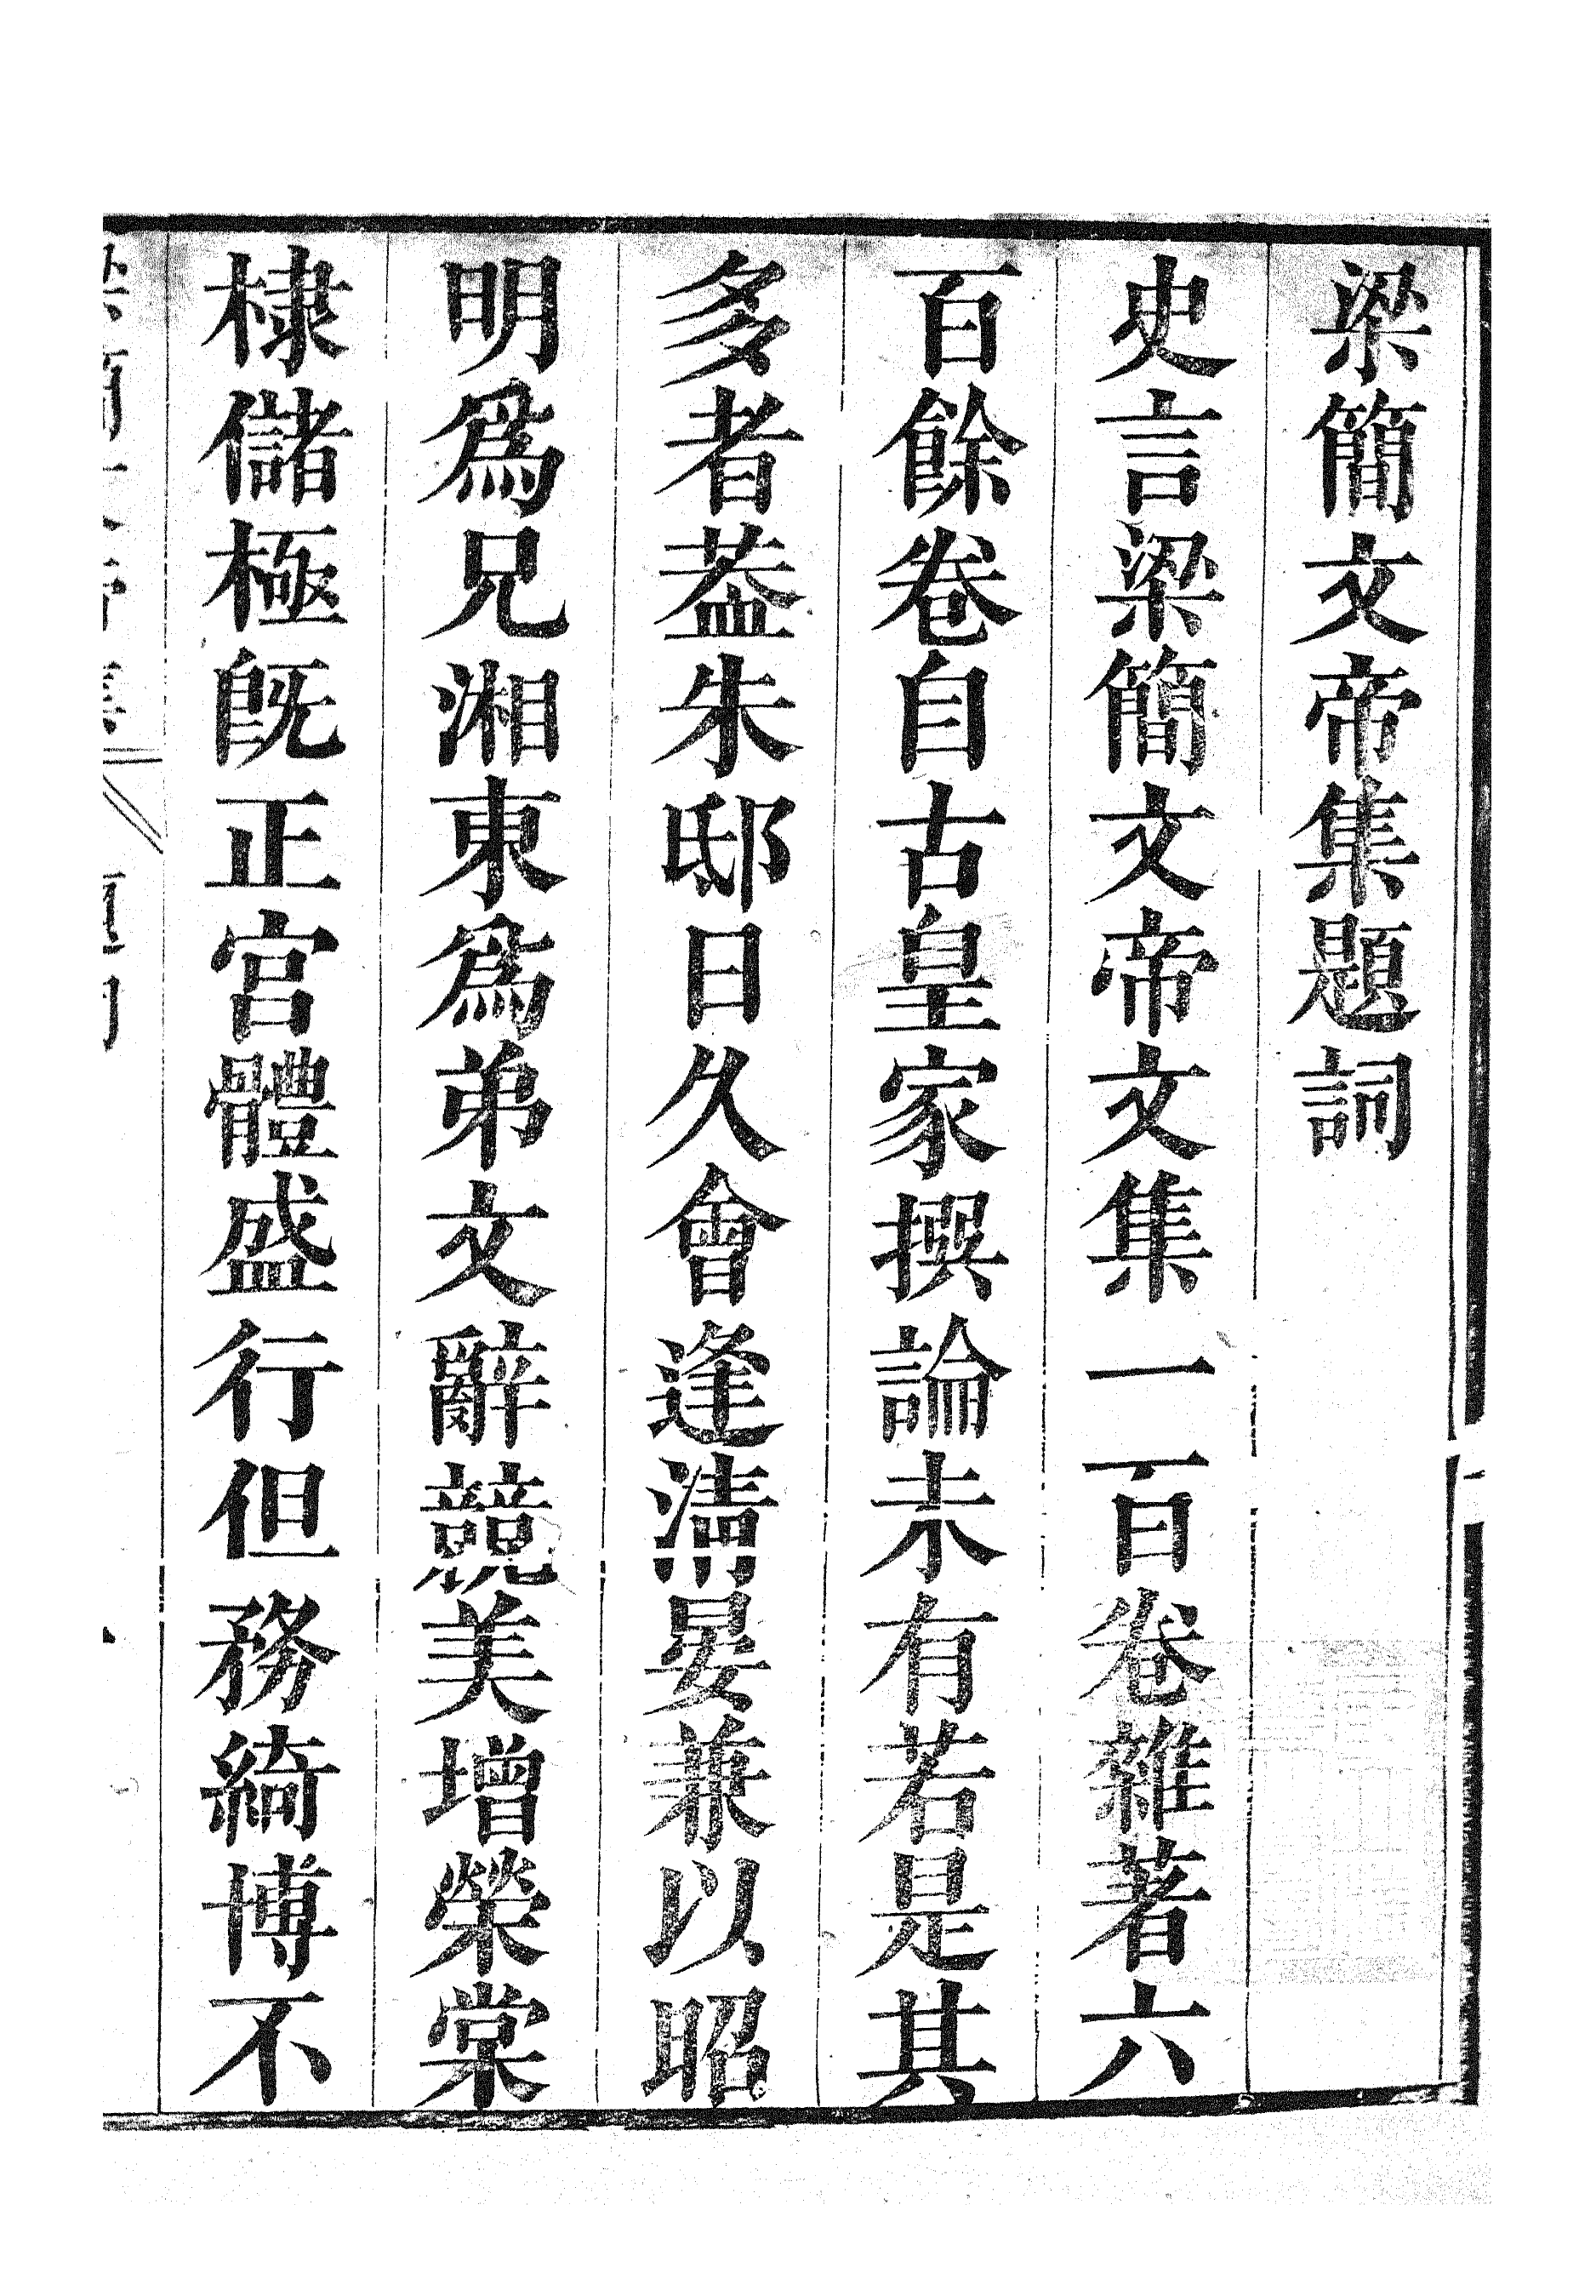 梁簡文帝集題詞
史言梁簡文帝文集一百卷雜著六
百餘卷自古皇家撰論未有若是其
多者葢朱邸日久會逢清晏兼以昭
明爲兄湘東爲弟文辭競美增榮棠
棣儲極既正宮體盛行但務綺博不